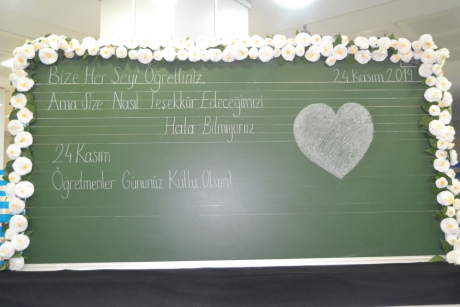 Bize Her Şeyi Öğrettiniz,
24 Kasım 2019
Ama Size Nasıl Teşekkür Edeceğimizi
Hala Bilmiyoruz
24 Kasım
Öğretmenler Gününüz Kutlu Olsun!